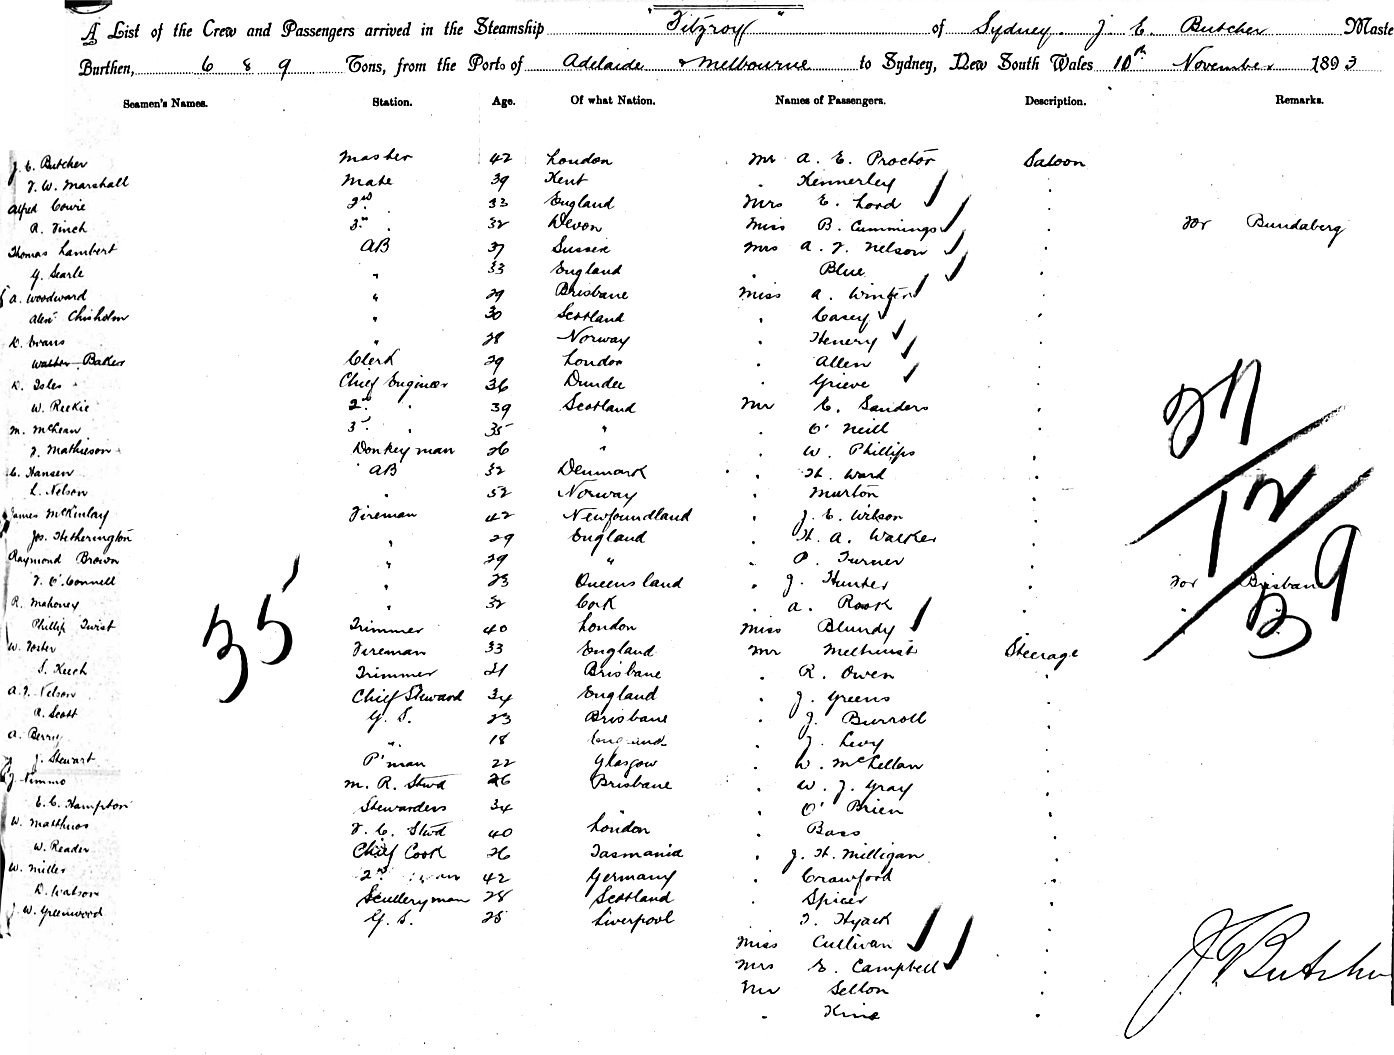 A List of the Crew and Passengers arrived in the Steamship Fitzroy of Sydney. J. E. Butcher Maste
Burthen, 689 Tons, from the Ports of Adelaide & Melbourne to Sydney, New South Wales 10th November 1893
Seamen's Names. Station. Age. Of what Nation. Names of Passengers. Description. Remarks.
J. E. Butcher Master 42 London Mr A. E. Proctor Saloon
F. W. Marshall Mate 39 Kent . Kennerley .
Alfred Cowie 2nd . 33 England Mrs E. Lord .
R. Finch 3rd . 32 Devon Miss B. Cummings . For Bundaberg
Thomas Lambert AB 37 Sussex Mrs A. F. Nelson .
G. Searle " 33 England . Blue .
A. Woodward " 29 Brisbane Miss A. Winter .
Alexr Chisholm " 30 Scotland . Casey .
D. Evans " 28 Norway . Henery .
Walter Baker Clerk 29 London . Allen .
K. Isles Chief Engineer 36 Dundee . Grieve .
W. Reekie 2nd . 39 Scotland Mr E. Sanders .
M. McLean 3rd . 35 " . O'Neill .
J. Mathieson Donkeyman 26 " . W. Phillips .
C. Hansen AB 32 Denmark . H. Ward .
L. Nelson . 52 Norway . Murton .
James McKinlay Fireman 42 Newfoundland . J. E. Wilson .
Jos. Hetherington " 29 England . H. A. Walker .
Raymond Brown " 29 " . P. Turner .
F. O'Connell " 23 Queensland . J. Hunter . For Brisbane
R. Mahoney " 32 Cork . A. Rook . "
Phillip Twist Trimmer 40 London Miss Blundy .
W. Foster Fireman 33 England Mr Melhuist Steerage
S. Keech Trimmer 21 Brisbane . R. Owen .
A. F. Nelson Chief Steward 34 England . J. Greens .
R. Scott G. S. 23 Brisbane . J. Burroll .
A. Berry " 18 England . J. Levy .
J. Stewart P'man 22 Glasgow . W. McLellan .
J. Nimmo M. R. Stwd 26 Brisbane . W. J. Gray .
E. C. Hampton Stewardess 34 " . O'Brien .
W. Matthews F. C. Stwd 40 London . Bass .
W. Reader Chief Cook 26 Tasmania . J. H. Milligan .
W. Miller 2nd 42 Germany . Crawford .
D. Watson Sculleryman 28 Scotland . Spicer .
J. W. Greenwood G. S. 25 Liverpool . F. Hyack .
Miss Cullivan .
Mrs E. Campbell .
Mr Sellon .
. King .
35
27
12
39
J. E. Butcher